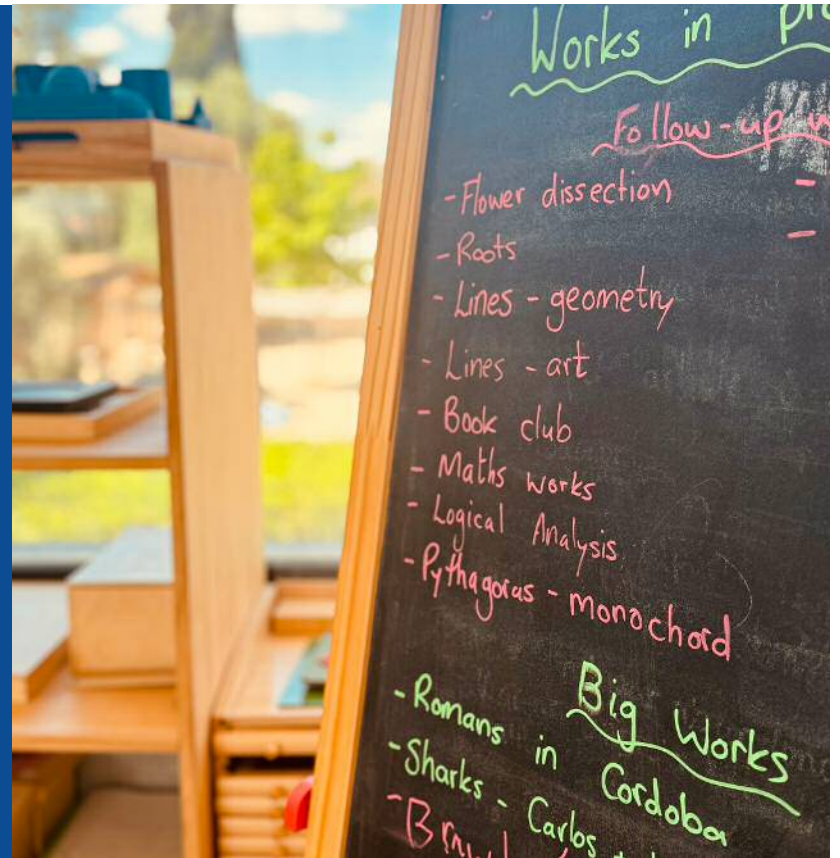 Works in
Follow-up
- Flower dissection
- Roots
- Lines - geometry
- Lines - art
- Book club
- Maths works
- Logical Analysis
- Pythagoras - monochord
Big Works
- Romans in Cordoba
- Sharks - Carlos